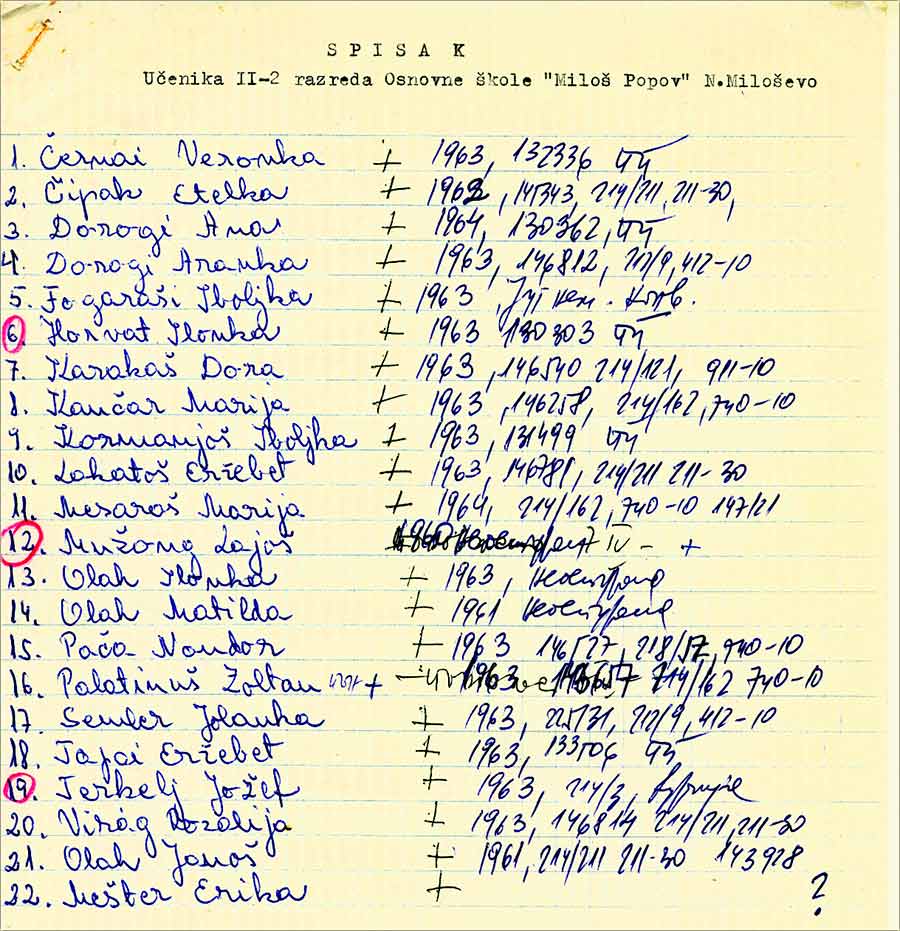 S P I S A K
Učenika II-2 razreda Osnovne škole "Miloš Popov" N.Miloševo
1. Černai Veronka + 1963, 132336
2. Čipak Etelka + 1962, 145343, 214/211, 211-30,
3. Dorogi Ana + 1964, 130362,
4. Dorogi Aranka + 1963, 146812, 212/9, 412-10
5. Fogaraši Iboljka + 1963
6. Horvat Ilonka + 1963 130303
7. Karakaš Dora + 1963, 146540 214/121, 911-10
8. Kančar Marija + 1963, 146258, 214/162, 740-10
9. Kormanjoš Iboljka + 1963, 131499
10. Lakatoš Eržebet + 1963, 146781, 214/211 211-30
11. Mesaroš Marija + 1964, 214/162, 740-10 147/21
12. Lajoš IV - +
13. Olah Ilonka + 1963,
14. Olah Matilda + 1961
15. Pača Nandor + 1963 146527, 218/57, 940-10
16. Palatinuš Zoltan + 1963 214/162 740-10
17. Semler Jolanka + 1963, 225131, 212/9, 412-10
18. Tapai Eržebet + 1963, 133506
19. Terkelj Jožef + 1963, 214/3,
20. Virág Rozalija + 1963, 146814 214/211, 211-30
21. Olah Janoš + 1961, 214/211 211-30 143928
22. Mešter Erika + ?